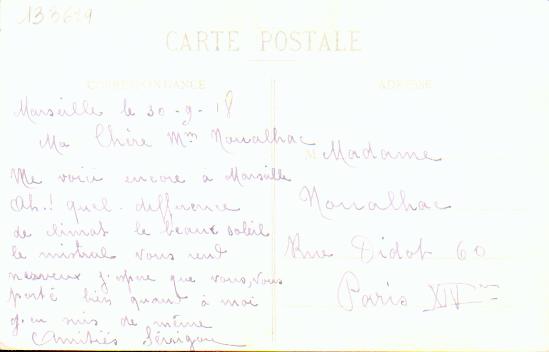 133679
CARTE POSTALE
CORRESPONDANCE
ADRESSE
Marseille le 30-9-18
Ma Chère Mme Noualhac
Me voici encore a Marseille
Ah.! quel difference
de climat le beaux soleil
le mistral vous rend
nerveux j'espre que vous, vous
porté bien quand à moi
j'en suis de même
Amitiés
M Madame
Noualhac
Rue Didot 60
Paris XIVme